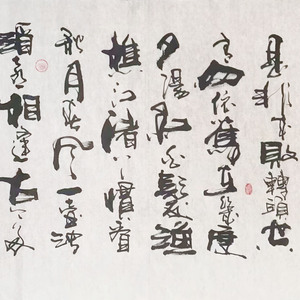 是非成敗轉頭空
青山依舊在幾度
夕陽紅白髮漁
樵江渚上慣看
秋月春風一壺濁
酒喜相逢古今多